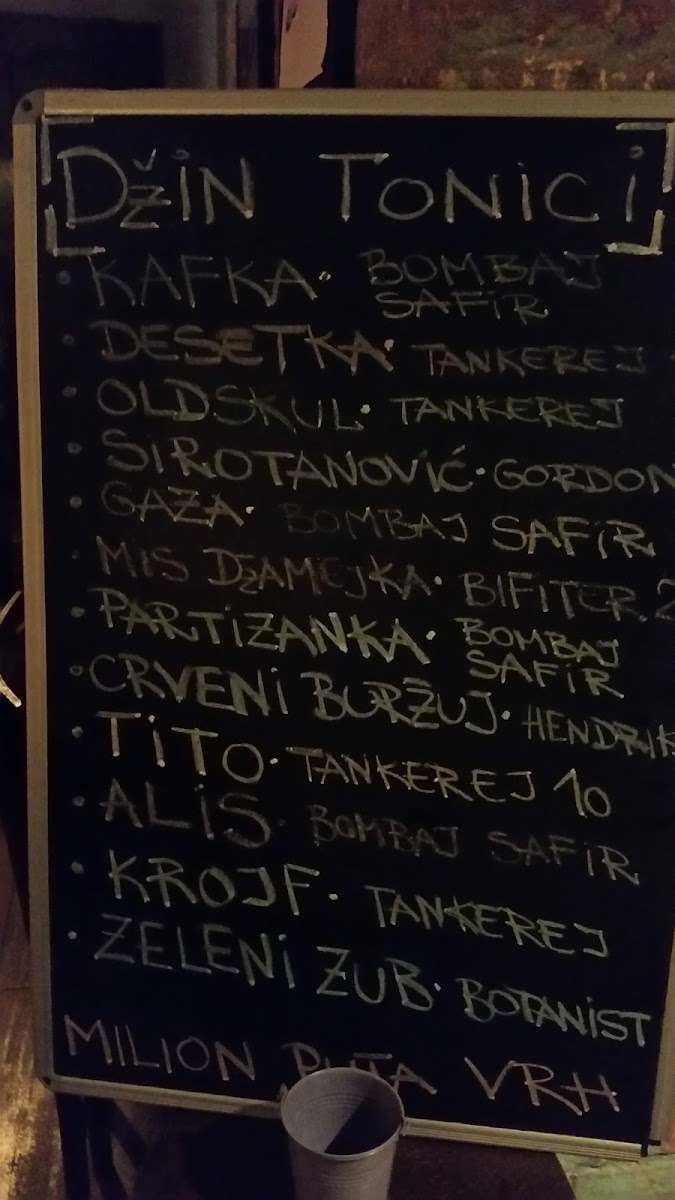 DŽIN TONICI
• KAFKA • BOMBAJ SAFIR
• DESETKA • TANKEREJ
• OLDSKUL • TANKEREJ
• SIROTANOVIĆ • GORDON
• GAZA • BOMBAJ SAFIR
• MIS DŽAMEJKA • BIFITER 2
• PARTIZANKA • BOMBAJ SAFIR
• CRVENI BURŽUJ • HENDRIK
• TITO • TANKEREJ 10
• ALIS • BOMBAJ SAFIR
• KROJF • TANKEREJ
• ZELENI ZUB • BOTANIST
MILION PUTA VRH